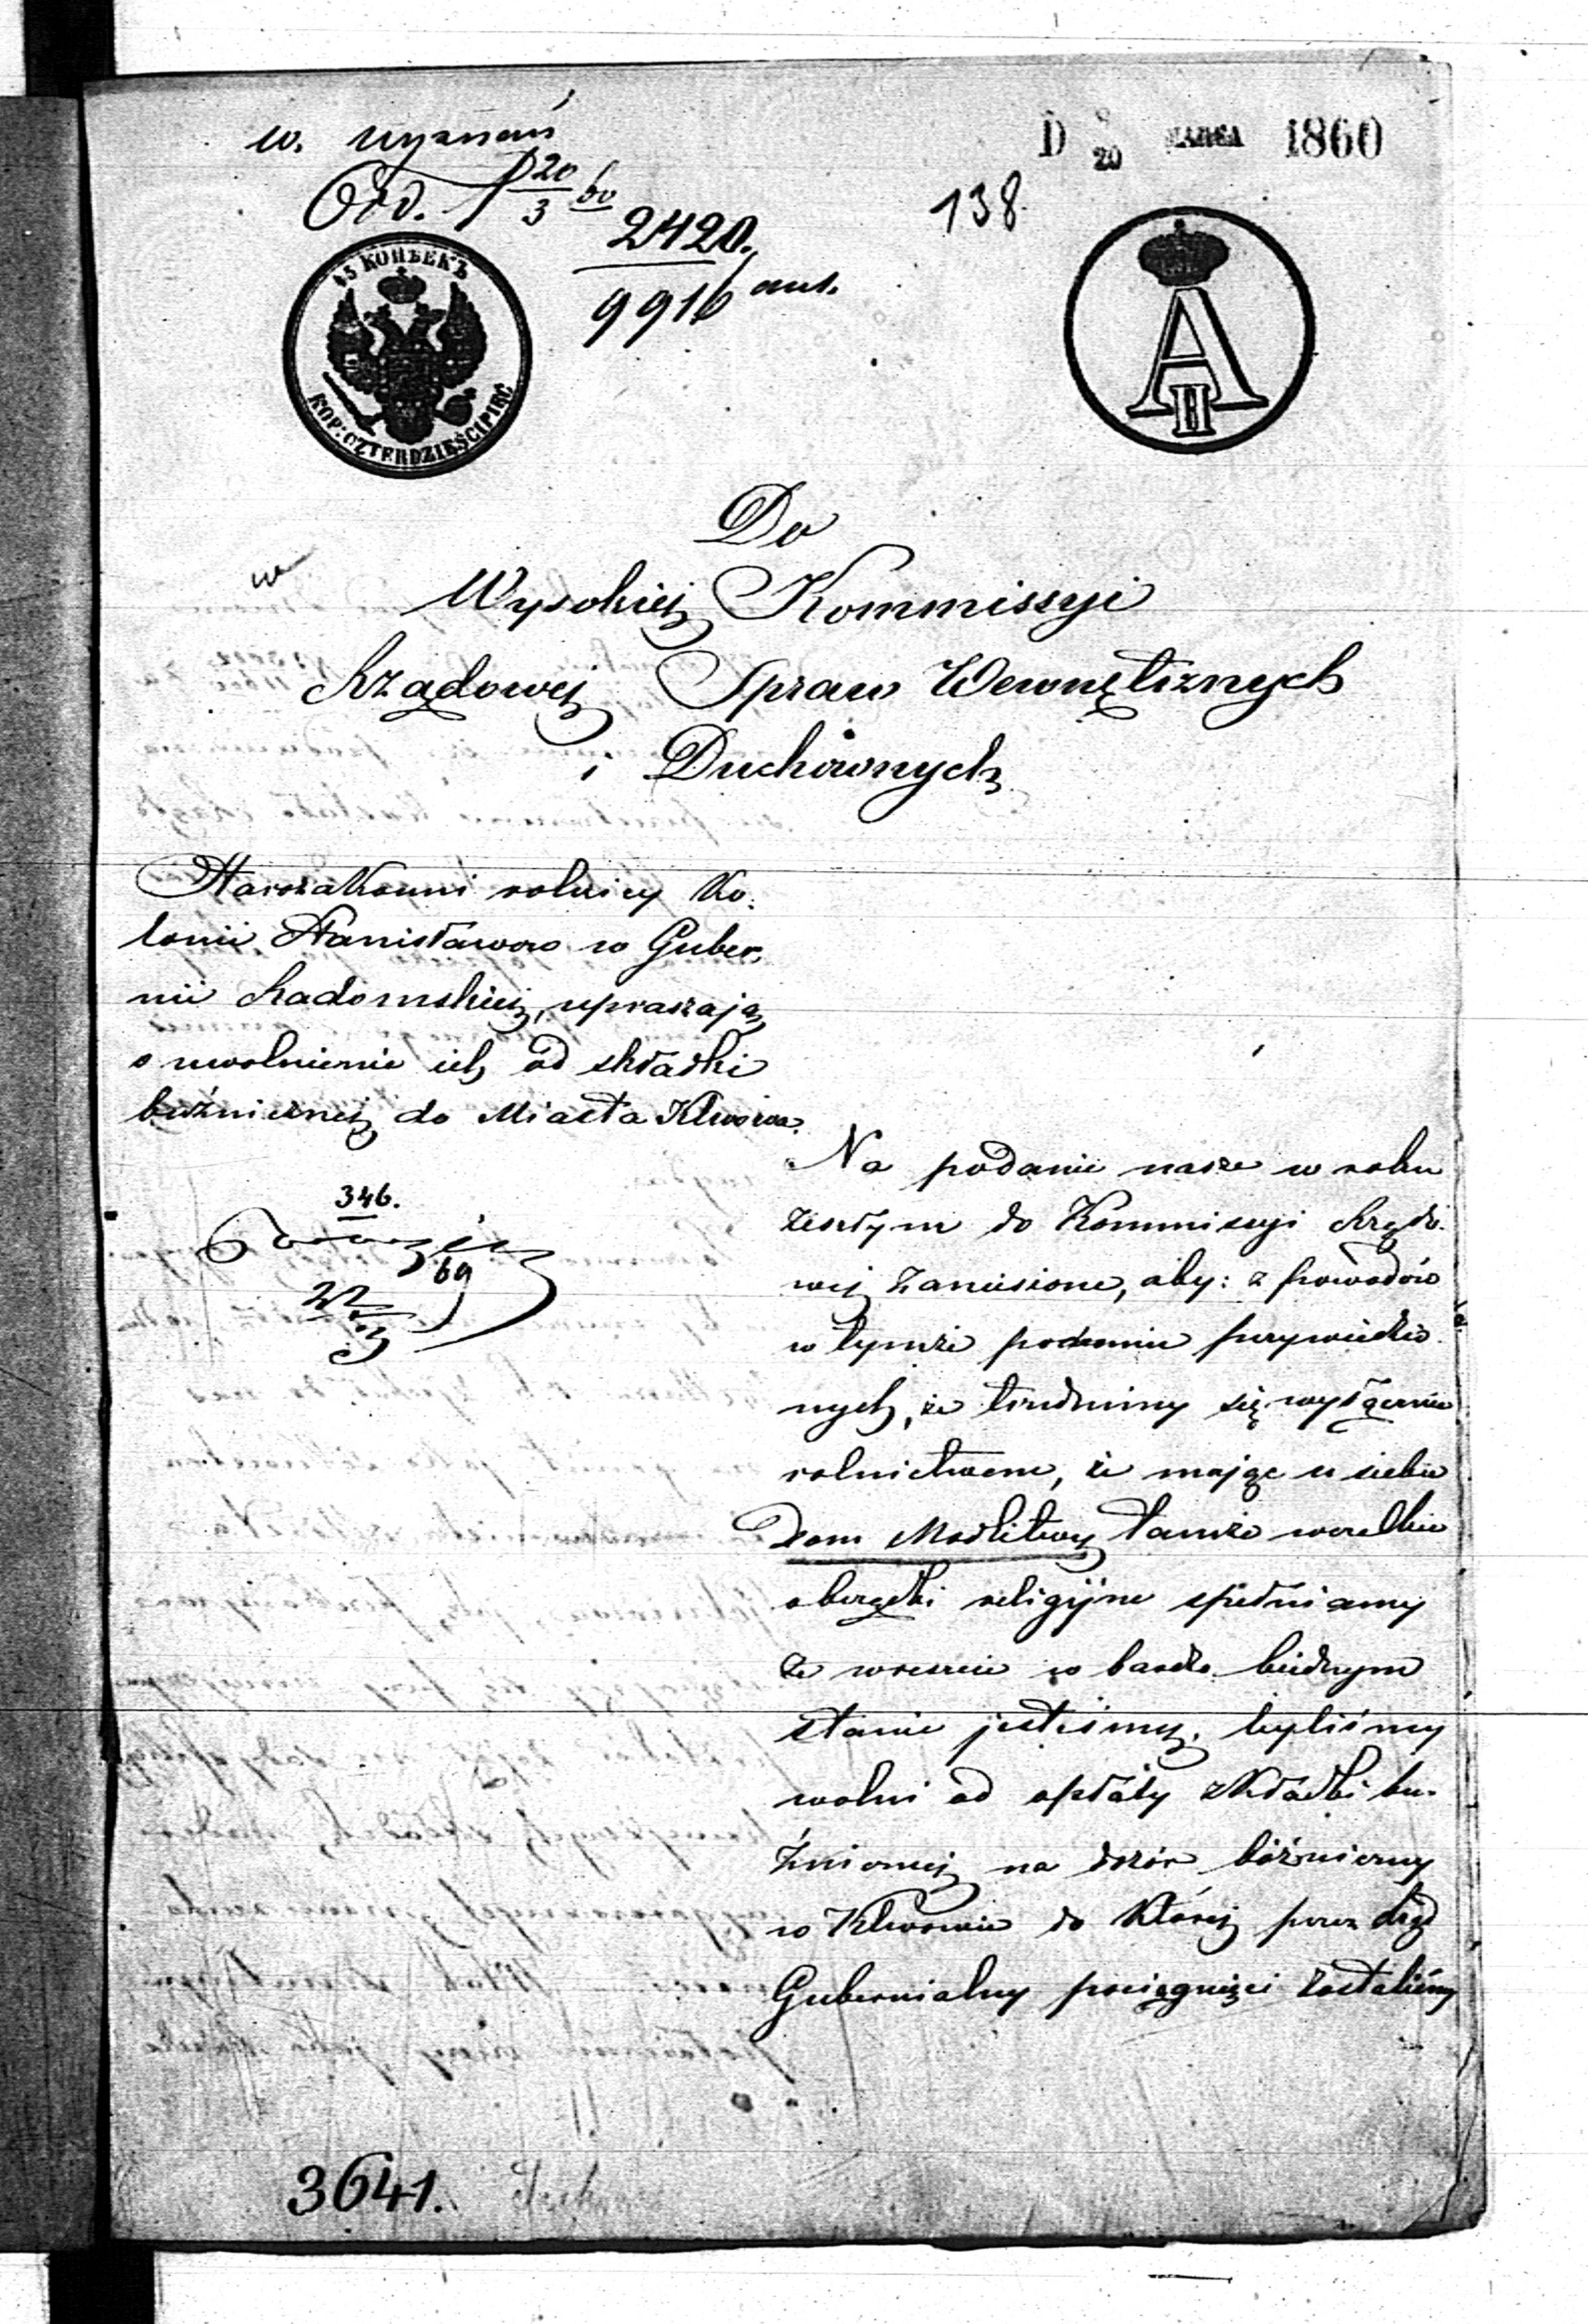 w. wyznań
D 8/20 MARCA 1860
Odd. 20/3 60
138
2420.
9916 ant.
45 КОПѢЕКЪ
KOP: CZTERDZIEŚCI PIĘĆ
A II
Do
Wysokiej Kommissyi
Rządowej Spraw Wewnętrznych
i Duchownych
Starozakonni rolnicy Ko-
lonii Stanisławow w Guber-
nii Radomskiej, upraszają
o uwolnienie ich od składki
bużnicznej do Miasta Klwowa.
346.
Na podanie nasze w roku
zeszłym do Kommissyi Rządo-
wej zaniesione, aby: z powodów
w tymże podaniu przywiedzio-
nych, że trudnimy się wyłącznie
rolnictwem, że mając u siebie
Dom Modlitwy tamże wszelkie
obrzędki religijne spełniamy
że wreszcie w bardzo biednym
stanie jesteśmy, byliśmy
wolni od opłaty składki bu-
żnicznej na dozór bóżniczny
w Klwowie do której przez Rząd
Gubernialny pociągnięci zostaliśmy
3641.